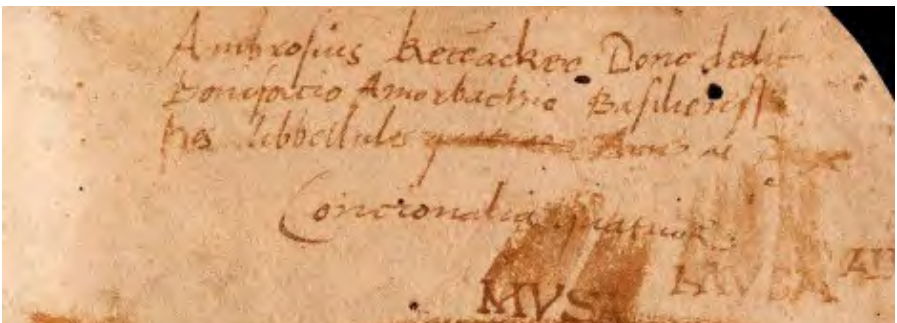 Ambrosius Kettacker Dono dedit
Bonifacio Amorbachio Basiliensi
hos libbellules
Concionalia quatuor
MVS